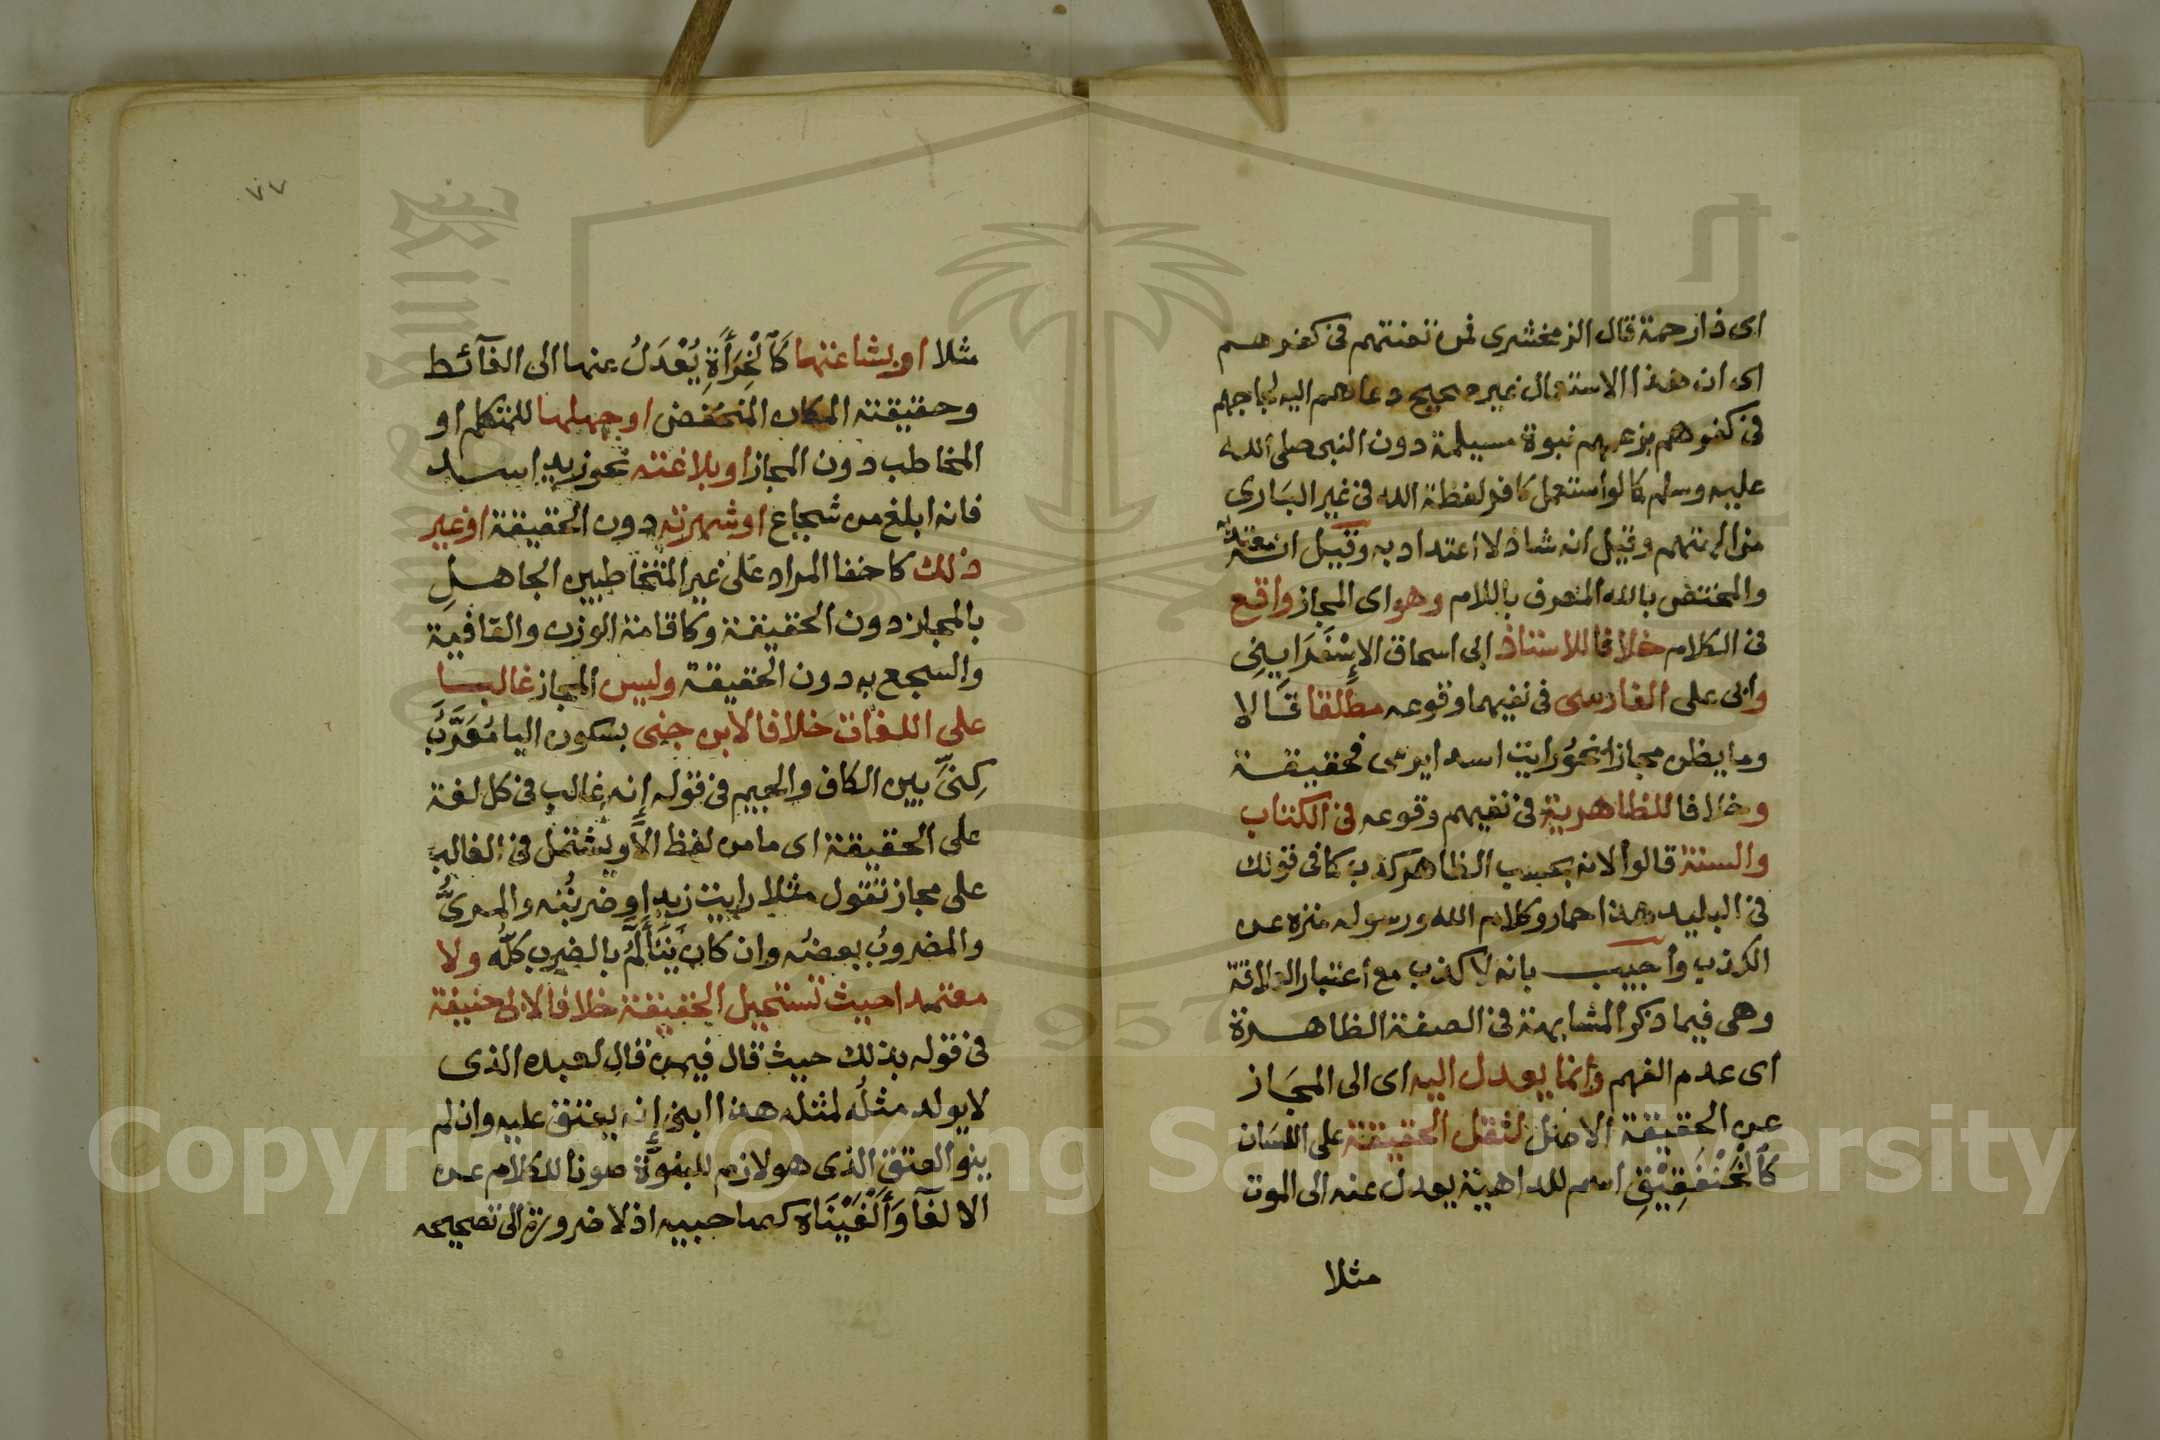 اى ذا رحمة قال الزمخشرى فمن تعنتهم فى كفرهم
اى ان هذا الاستعمال غير صحيح دعاهم اليه لجاجهم
فى كفرهم بزعمهم نبوة مسيلمة دون النبى صلى الله
عليه وسلم كما لو استعمل كافر لفظة الله فى غير البارى
من الهتهم وقيل انه شاذ لا اعتداد به وقيل انه معتد به
والمختص بالله المعرف باللام وهو اى المجاز واقع
فى الكلام خلافا للاستاذ ابى اسحاق الإسْفَرَاييِنِى
وابى على الفارسى فى نفيهما وقوعه مطلقا قالا
وما يظن مجازا نحوُ رايت اسدا يرمى فحقيقة
وخلافا للظاهرية فى نفيهم وقوعه فى الكتاب
والسنة قالوا لانه بحسب الظاهر كذب كما فى قولك
فى البليد هذا حمار وكلام الله ورسوله منزه عن
الكذب وأجيب بانه لا كذب مع اعتبار العلاقة
وهى فيما ذكر المشابهة فى الصفة الظاهرة
اى عدم الفهم وانما يعدل اليه اى الى المجَاز
عن الحقيقة الاصل لثقل الحقيقة على اللسَان
كَالْخَنْفَقِيْقِ اسم للداهية يعدل عنه الى الموت
مثلا
٧٧
مثلا او بشاعتها كَالْخِرَأَةِ يُعْدَلُ عنها الى الغآئط
وحقيقته المكان المنخفض او جهلها للمتكلم او
المخاطب دون المجاز او بلاغته نحو زيد اسد
فانه ابلغ من شجاع او شهرته دون الحقيقة او غير
ذلك كاخفا المراد عَلى غير المتخاطبين الجاهلِ
بالمجاز دون الحقيقة وكاقامة الوزن والقافية
والسجع به دون الحقيقة وليس المجاز غالبا
على اللغات خلافا لابن جنى بسكون اليا مُعَرَّبُ
كِنىِّ بين الكاف والجيم فى قوله إنه غالب فى كل لغة
على الحقيقة اى ما من لفظ الاَّ ويشتمل فى الغالب
على مجاز تقول مثلا رايت زيدا وضربْتُه والمرىُّ
والمضروبُ بعضُه وان كان يَتَأَلَّمُ بالضرب كلُّه ولا
معتمدا حيث تستحيل الحقيقة خلافا لابى حنيفة
فى قوله بذلك حيث قال فيمن قال لعبده الذى
لا يولد مثلُه لمثله هذا ابنى إنه يعتق عليه وان لم
ينو العتق الذى هو لازم للبنوَّة صونا للكلام عن
الالغآ وَأَلْغَيْنَاهُ كصاحبيه اذ لا ضرورة الى تصحيحه
Copyright © King Saud University
1957